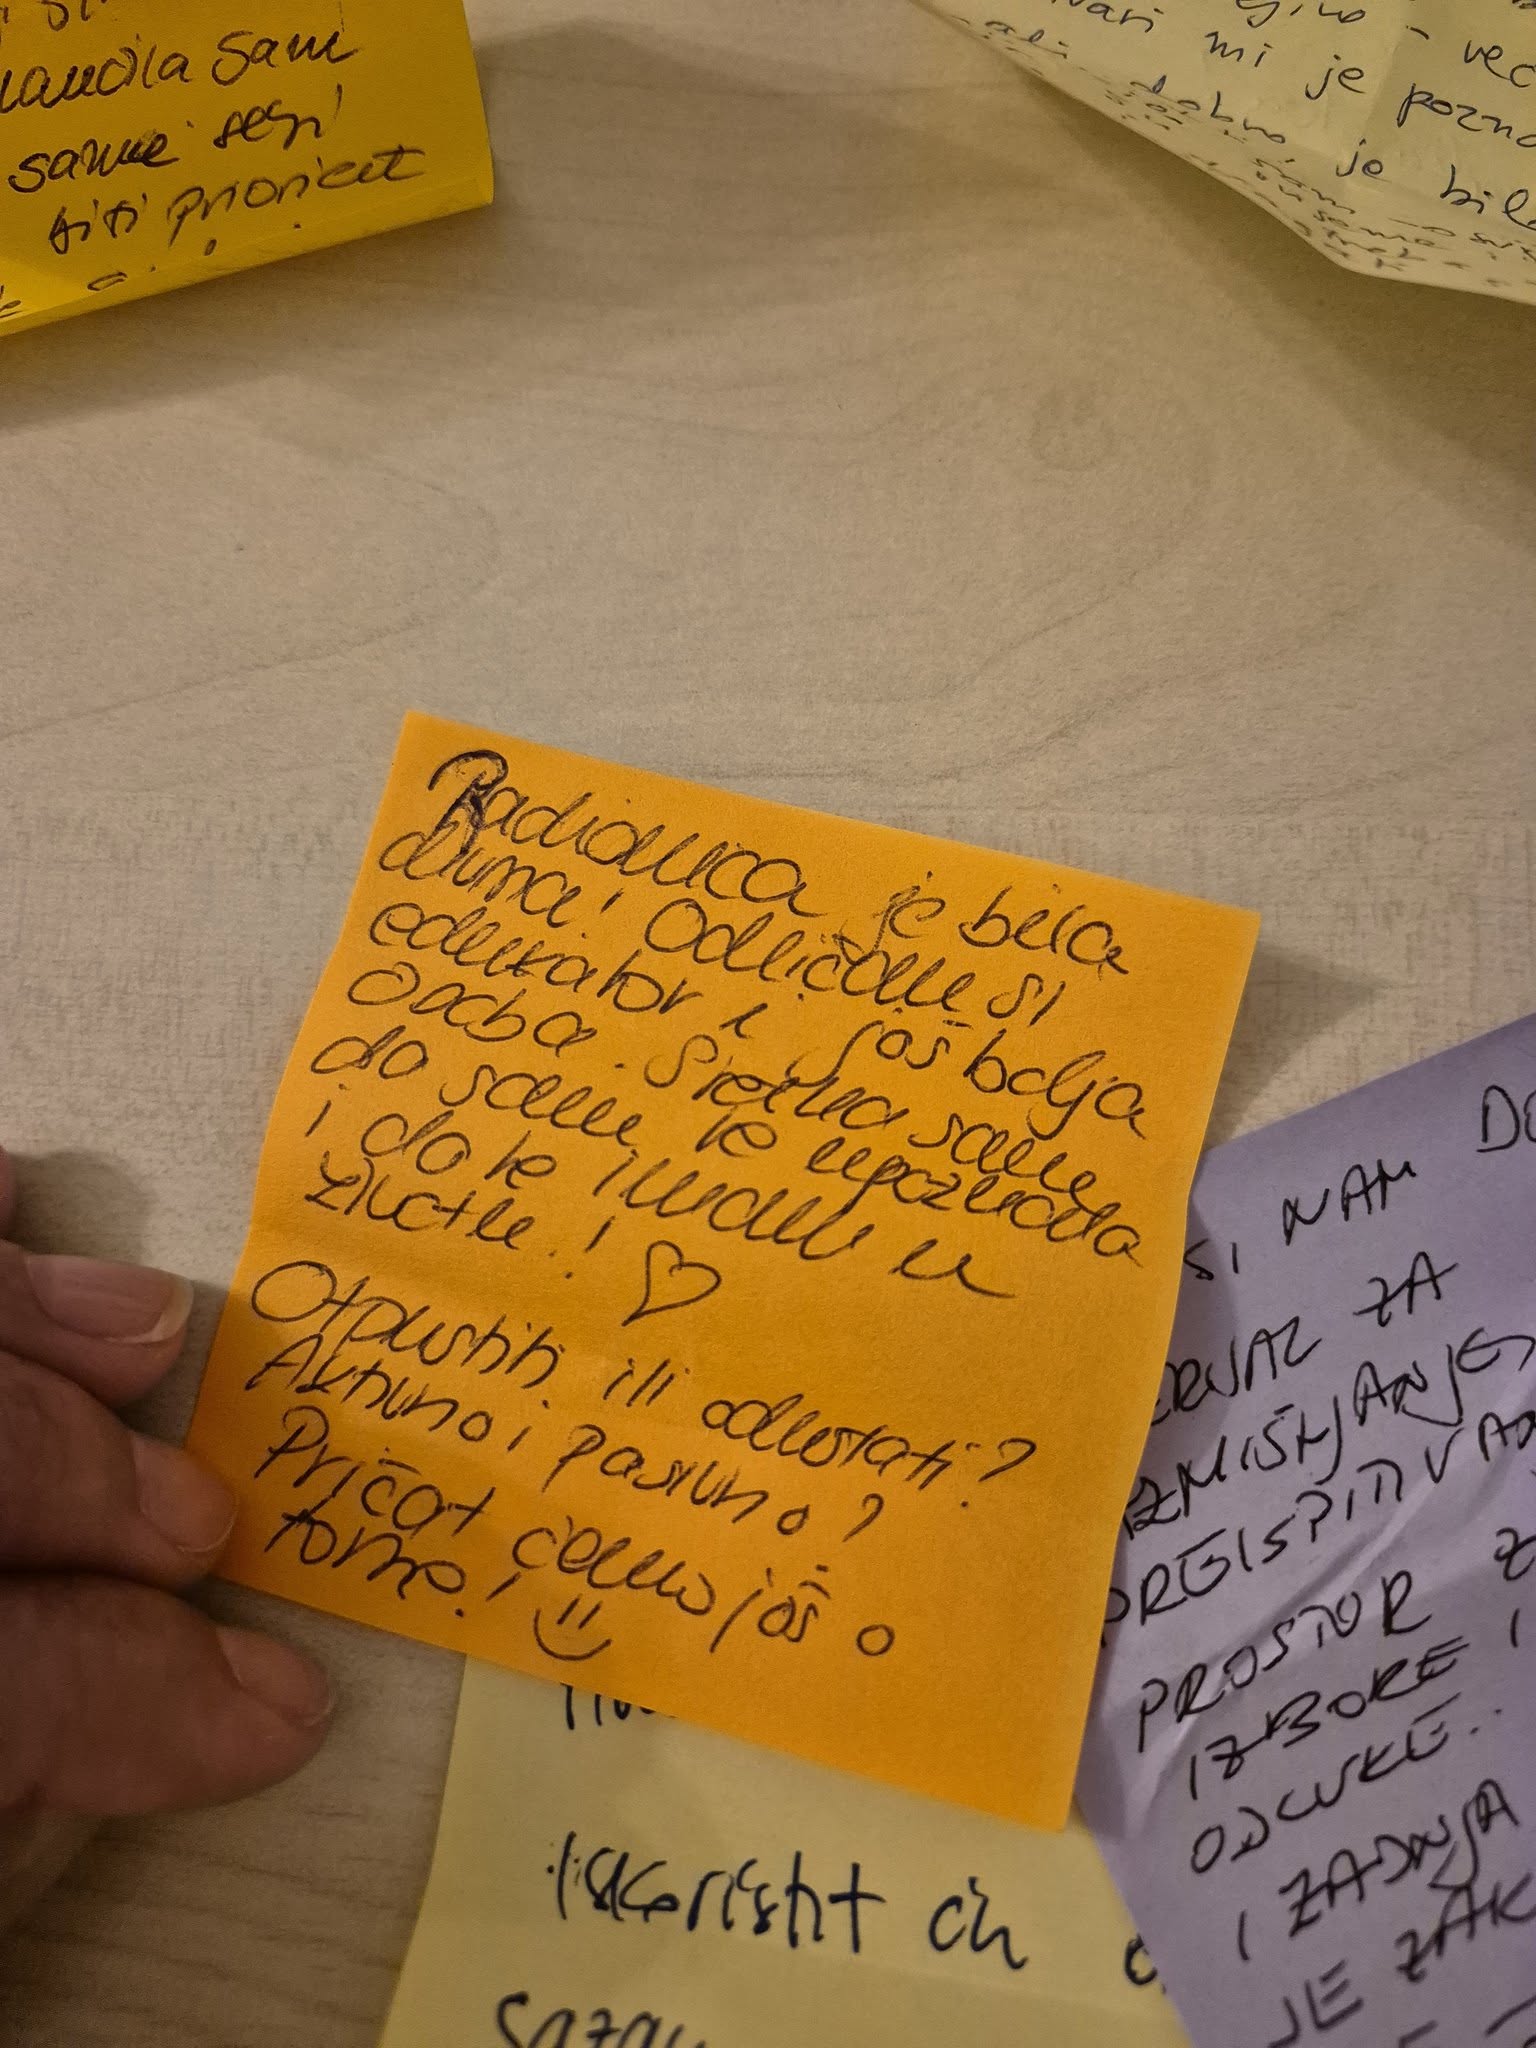 sam
samoj sebi
biti prioritet
već
mi je pozno
dobro je bil
Radionica je bila
divna! Odličan si
edukator i još bolja
osoba. Sretna sam
da sam te upoznala
i da te imam u
životu! ♡
Otpustiti ili odustati?
Aktivno i pasivno?
Pričat ćemo još o
tome! :)
DO
SI NAM
ZA
IZMIŠLJANJE,
PREISPITIVA
PROSTOR Z
IZBORE I
ODLUKE..
I ZADNJA
JE ZAK
iskoristit ću